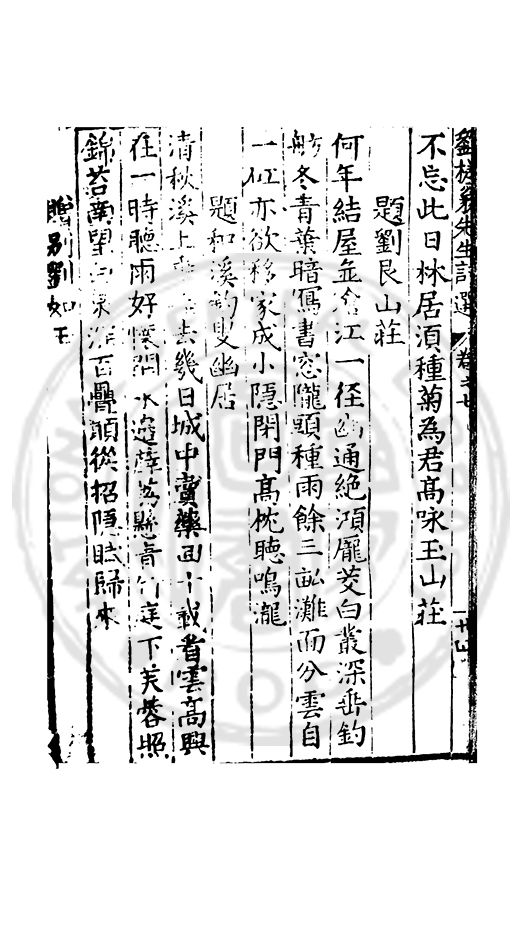 劉槎翁先生詩選 卷之七
廿四
不忘此日林居湏種菊為君高咏玉山莊
題劉艮山莊
何年結屋並滄江一徑幽通絶澒厖茭白叢深垂釣
舫冬青葉暗寫書窓隴頭種雨餘三畝灘面分雲自
一 亦欲移家成小隠閉門高枕聴鳴瀧
題和溪釣叟幽居
清秋溪上 去幾日城中賣藥囬十載看雲高興
在一時聴雨好懐開水邊薜荔懸青 庭下芙蓉照
錦苔南望 百疊頭從招隠賦歸來
贈别劉如玉